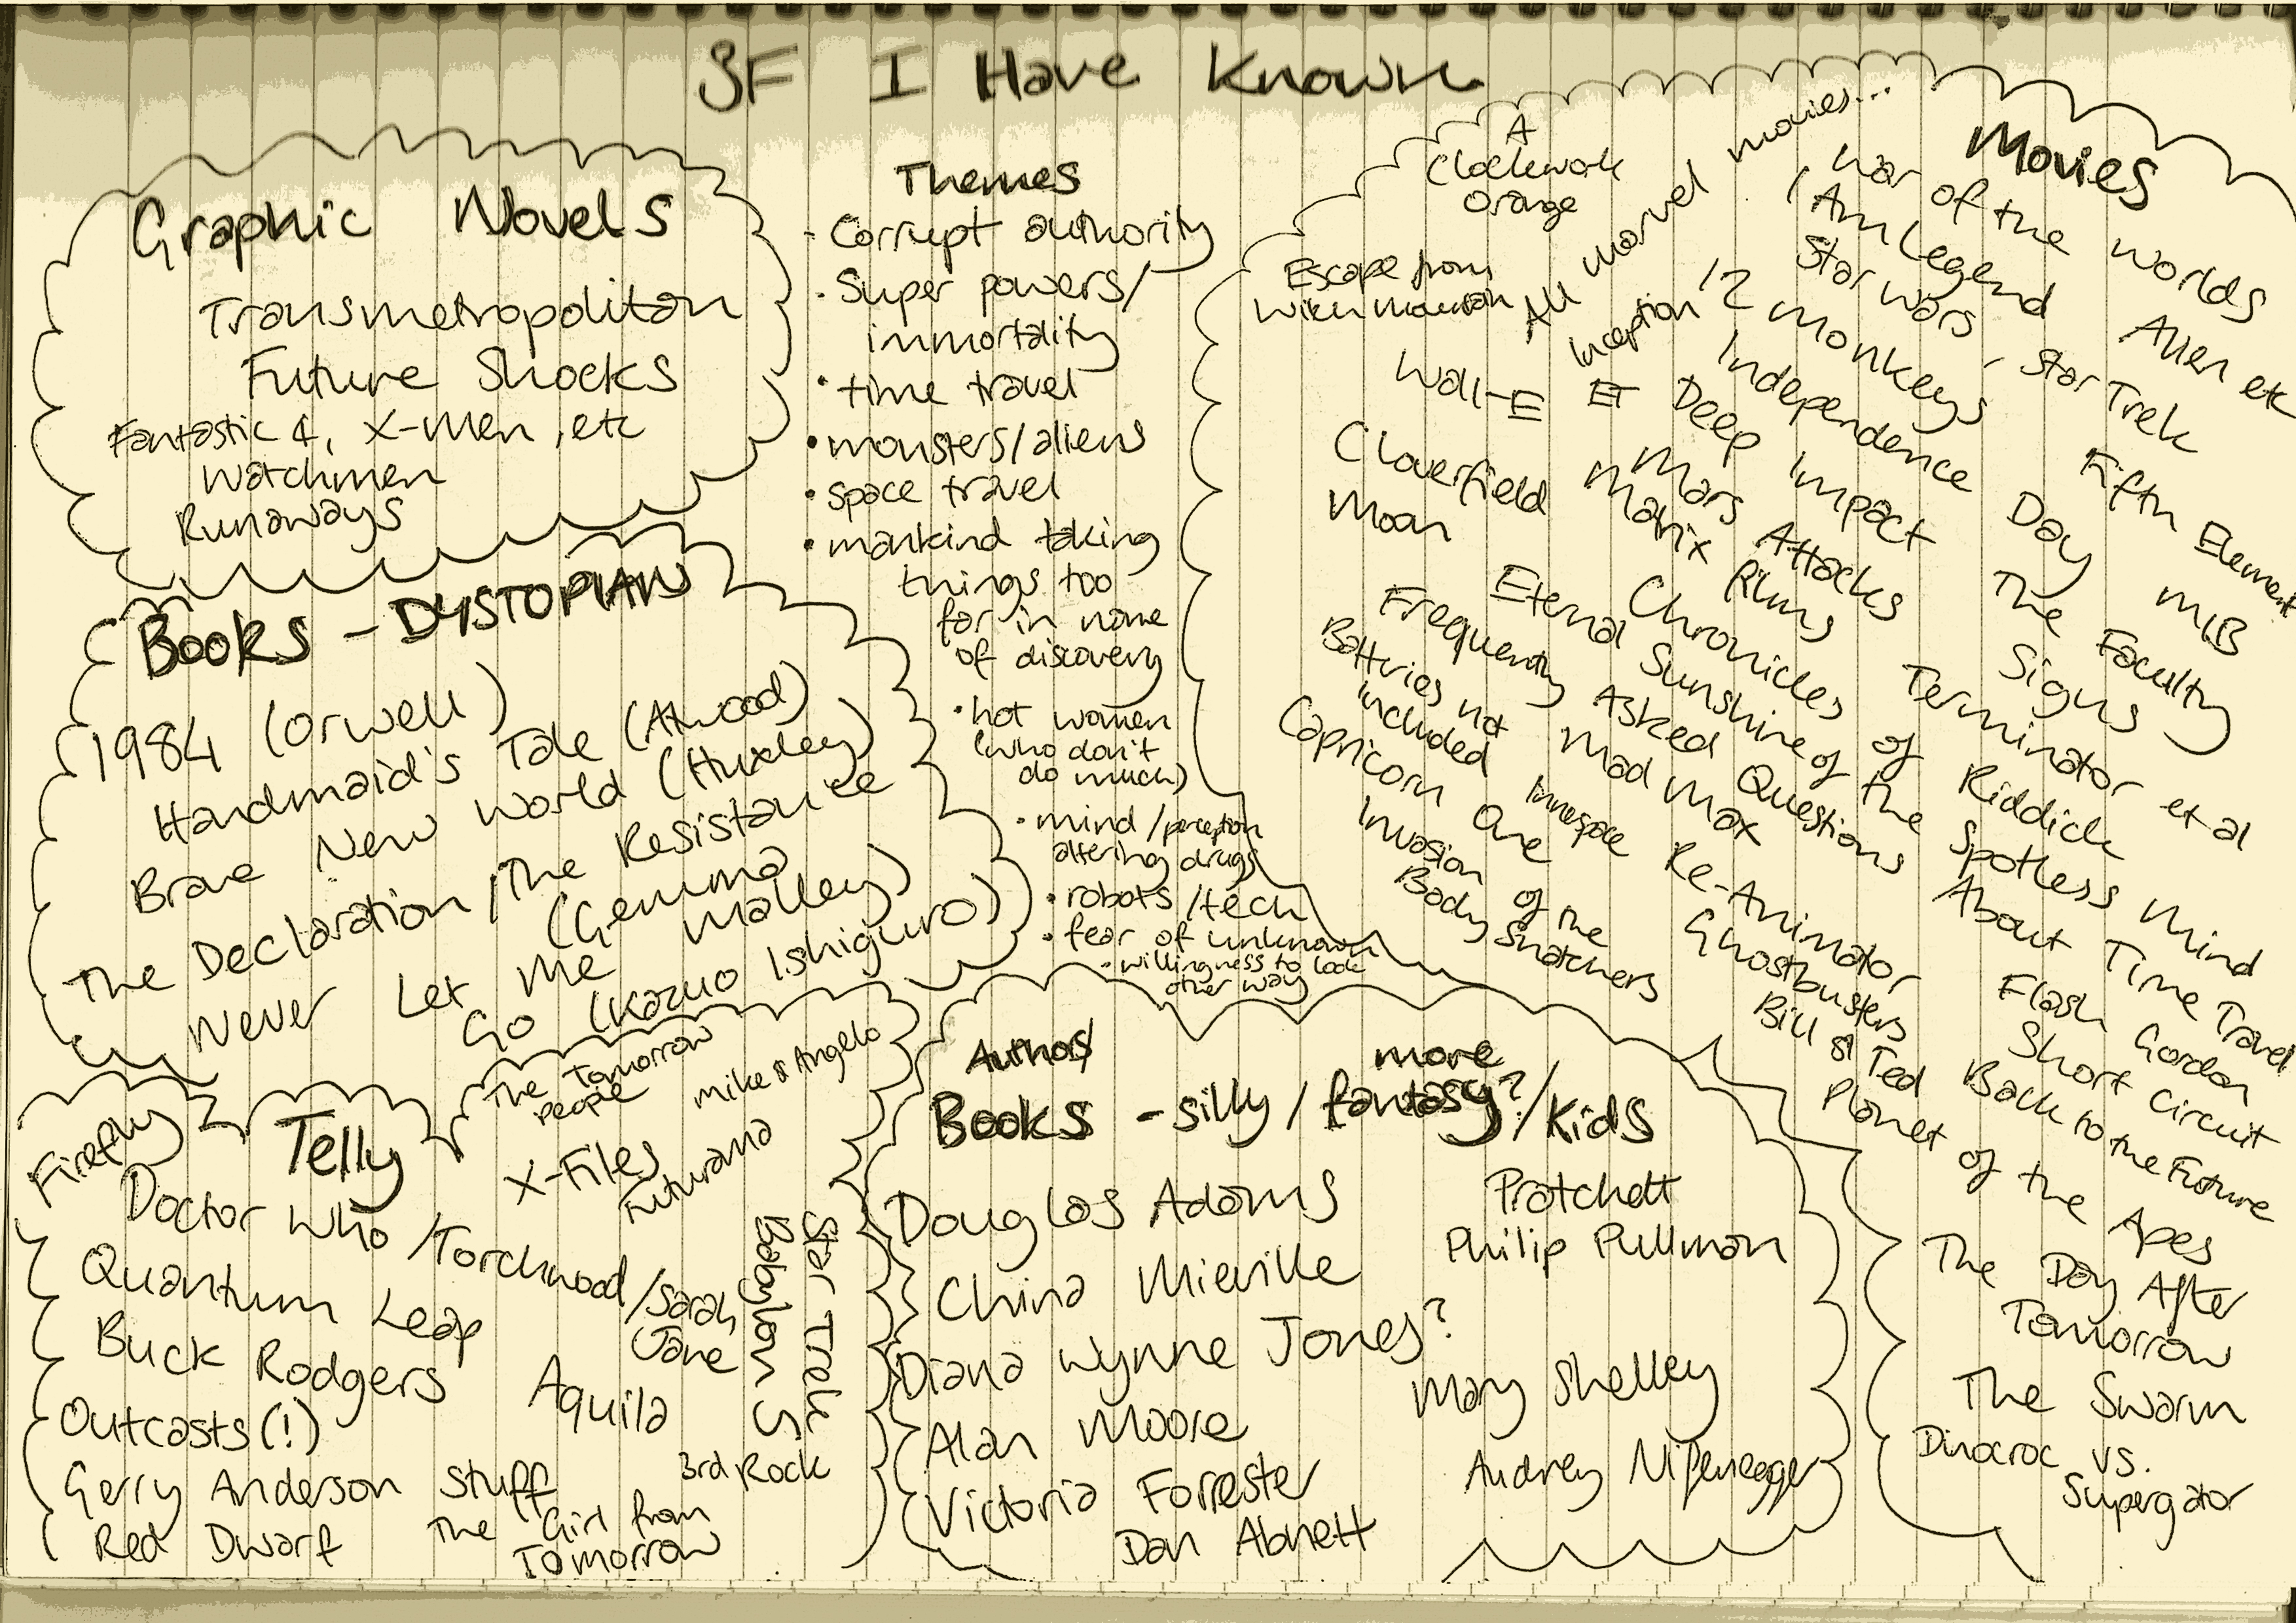 SF I Have Known
Graphic Novels
Transmetropolitan
Future Shocks
Fantastic 4, X-Men, etc
Watchmen
Runaways
Themes
- Corrupt authority
• Super powers/
immortality
• time travel
• monsters/aliens
• space travel
• mankind taking
things too
far in name
of discovery
• hot women
(who don't
do much)
• mind/perception
altering drugs
• robots/tech
• fear of unknown
• willingness to look
other way
Movies
A
Clockwork
Orange
All marvel movies...
War of the Worlds
I Am Legend
Alien etc
Star Wars, Star Trek
Escape from
Witch Mountain
Inception
12 Monkeys
Fifth Element
Wall-E
ET
Independence Day
MIB
Deep Impact
The Faculty
Cloverfield
Mars Attacks
Signs
Moon
Matrix films
Terminator et al
Chronicles of Riddick
Eternal Sunshine of the Spotless Mind
Frequently Asked Questions About Time Travel
Batteries not
included
Mad Max
Flash Gordon
Capricorn One
Innerspace
Re-Animator
Short Circuit
Invasion of the
Body Snatchers
Ghostbusters
Back to the Future
Bill & Ted
Planet of the Apes
The Day After
Tomorrow
The Swarm
Dinocroc vs.
Supergator
Books - DYSTOPIAN
1984 (Orwell)
Handmaid's Tale (Atwood)
Brave New World (Huxley)
The Declaration/The Resistance
(Gemma
Malley)
Never Let Me
Go (Kazuo Ishiguro)
Telly
Firefly
The Tomorrow
People
Mike & Angelo
X-Files
Futurama
Doctor Who/Torchwood/Sarah
Jane
Quantum Leap
Buck Rodgers
Star Trek
Babylon 5
Aquila
Outcasts (!)
3rd Rock
Gerry Anderson Stuff
Red Dwarf
The Girl from
Tomorrow
Authors/
Books - silly/more fantasy?/Kids
Douglas Adams
Pratchett
Philip Pullman
China Mieville
Diana Wynne Jones?
Mary Shelley
Alan Moore
Audrey Niffenegger
Victoria Forrester
Dan Abnett